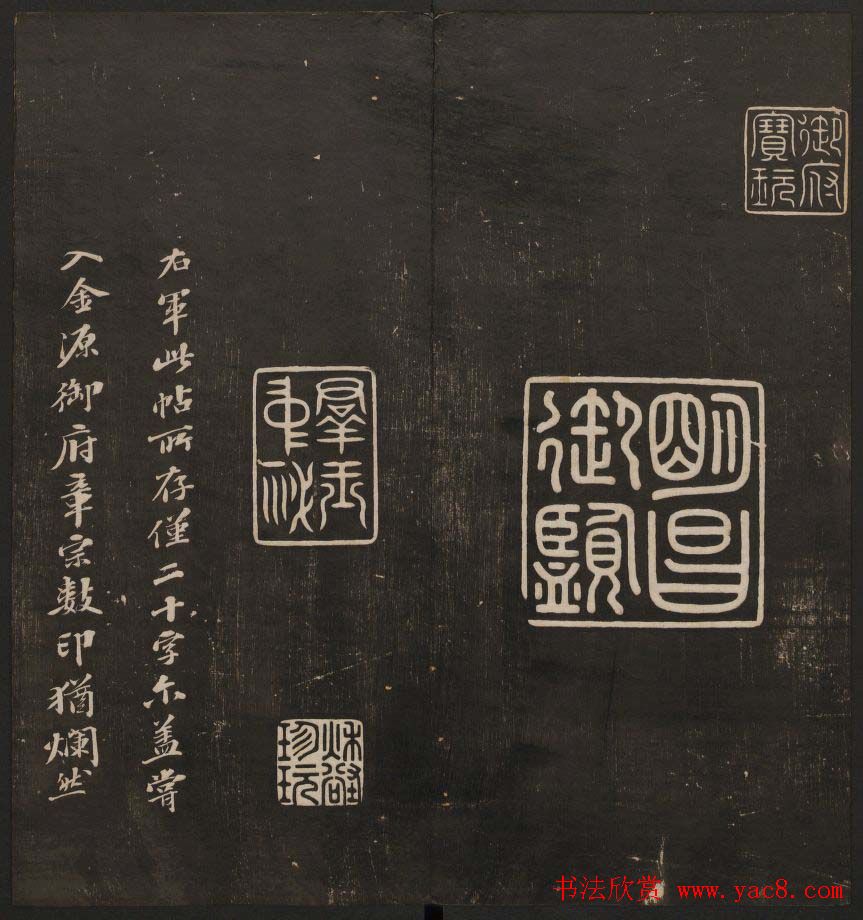 御府
寶玩
明昌
御覽
羣玉
中祕
秋壑
珍玩
右軍此帖所存僅二十字尒蓋嘗
入金源御府章宗數印猶爛然
书法欣赏 www.yac8.com